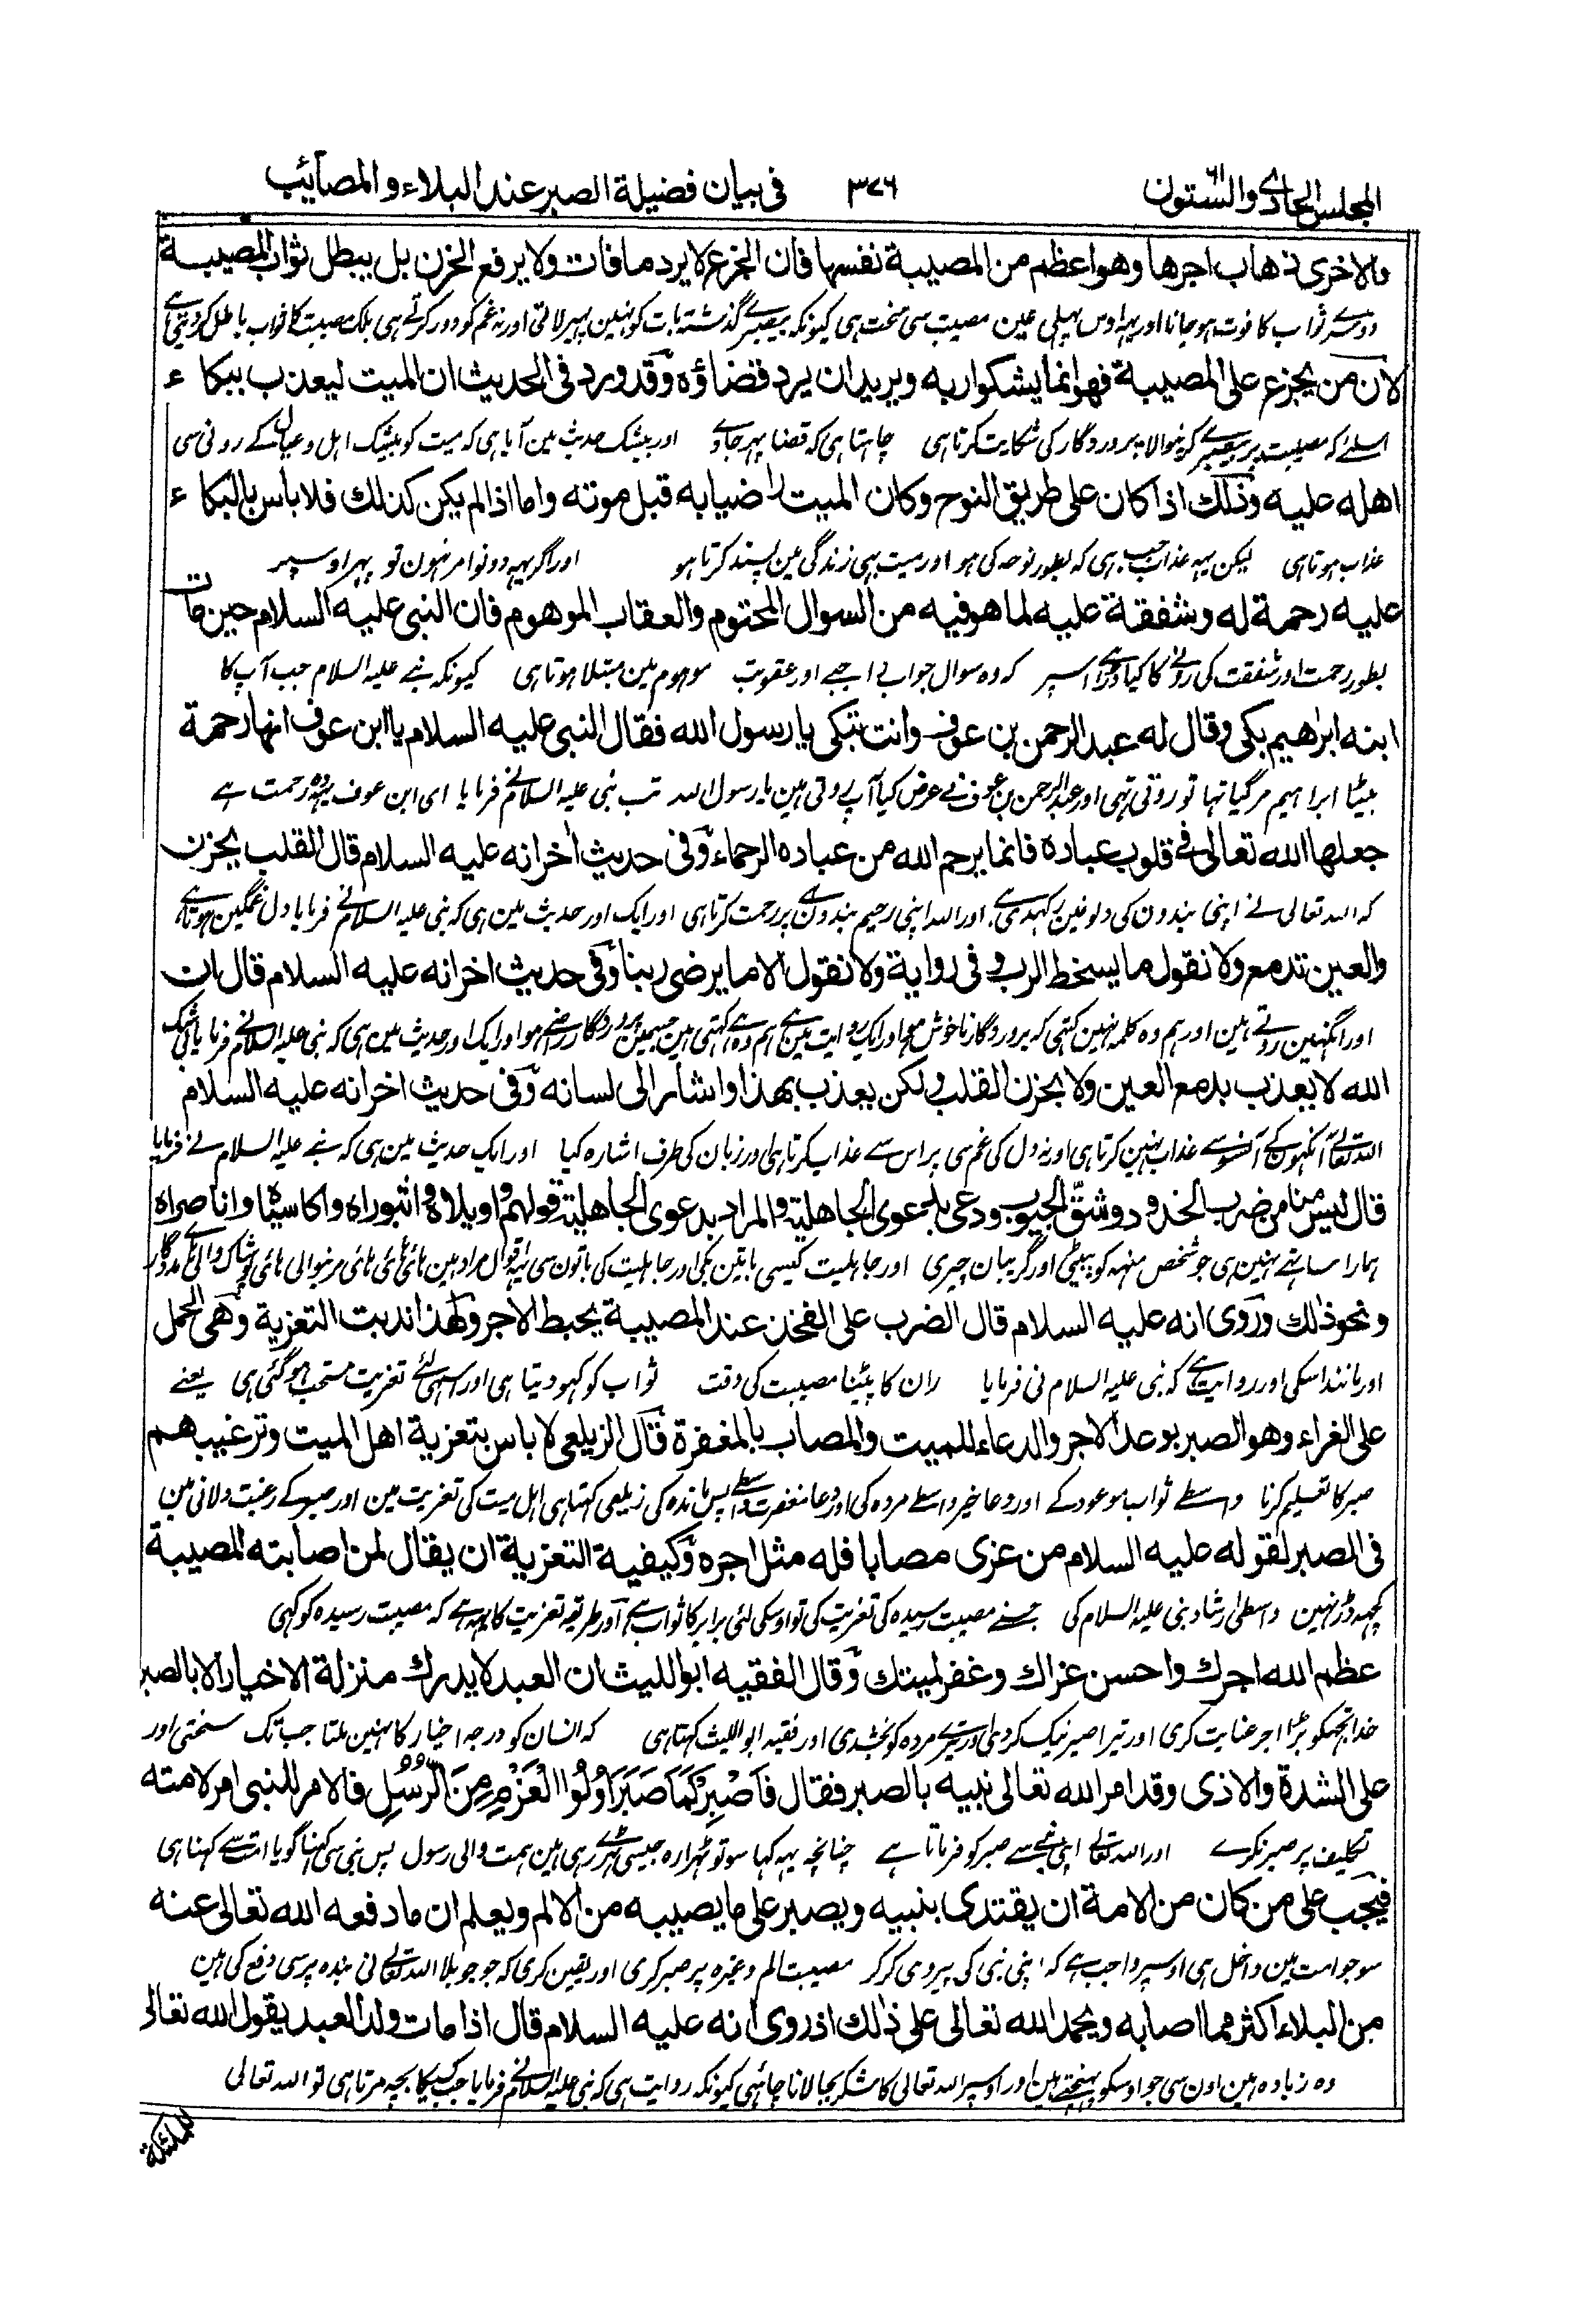 المجلس الحادي والستون ٦١
٣٧٦
فى بيان فضيلة الصبر عند البلاء والمصآئب
والاخرى ذهاب اجرها وهو اعظم من المصيبة نفسها فان الجزع لا يرد ما فات ولا يرفع الحزن بل يبطل ثواب المصيبة
دوسرے ثواب کا فوت ہوجانا اور یہہ اوس پہلی عین مصیبت سی سخت ہی کیونکہ بیصبرے گذشتہ بات کو نہین پہیر لاتی اور نہ غم کو دور کرتے ہی بلکہ مصیبت کا ثواب باطل کر دیتی ہے
لان من يجزع على المصيبة فهو انما يشكو ربه ويريد ان يرد قضاؤه وقد ورد فى الحديث ان الميت ليعذب ببكاء
اسلئے کہ مصیبت پر بیصبرے کرنیوالا پروردگار کی شکایت کرتا ہی چاہتا ہی کہ قضا پہر جاوے اور بیشک حدیث مین آیا ہی کہ میت کو بیشک اہل و عیال کے رونی سی
اهله عليه وذلك اذا كان على طريق النوح وكان الميت راضيا به قبل موته واما اذا لم يكن كذلك فلا باس بالبكاء
عذاب ہوتا ہی لیکن یہہ عذاب جب ہی کہ بطور نوحہ کی ہو اور میت بہی زندگی مین پسند کرتا ہو اور اگر یہہ دونو امر نہون تو پہر اوسپر
عليه رحمة له وشفقة عليه لما هو فيه من السوال المحتوم والعقاب الموهوم فان النبى عليه السلام حين مات
بطور رحمت اور شفقت کی رونے کا کیا ڈر ہے اسپر کہ وہ سوال جواب واجبے اور عقوبت موہوم مین مبتلا ہوتا ہی کیونکہ نبے علیہ السلام جب آپ کا
ابنه ابراهيم بكى وقال له عبد الرحمن بن عوف وانت تبكى يا رسول الله فقال النبى عليه السلام يا ابن عوف انها رحمة
بیٹا ابراہیم مر گیا تہا تو روتی تہی اور عبد الرحمن بن عوف نے عرض کیا آپ روتی ہین یا رسول اللہ تب نبی علیہ السلام نے فرمایا ای ابن عوف یہہ وہ رحمت ہے
جعلها الله تعالى فى قلوب عباده فانما يرحم الله من عباده الرحماء وفى حديث اخر انه عليه السلام قال القلب يحزن
کہ اللہ تعالی نے اپنی بندون کی دلونمین رکہدی ہے اور اللہ اپنی رحیم بندون ہی پر رحمت کرتا ہی اور ایک اور حدیث مین ہی کہ نبی علیہ السلام نے فرمایا دل غمگین ہوتا ہے
والعين تدمع ولا نقول ما يسخط الرب و فى رواية ولا نقول الا ما يرضى ربنا وفى حديث اخر انه عليه السلام قال ان
اور انکہین روتے ہین اور ہم وہ کلمہ نہین کہتی کہ پروردگار ناخوش ہو اور ایک روایت مین ہے ہم وہ ہے کہتی ہین جسمین پروردگار راضے ہو اور ایک اور حدیث مین ہی کہ نبی علیہ السلام نے فرمایا بیشک
الله لا يعذب بدمع العين ولا بحزن القلب ولكن يعذب بهذا واشار الى لسانه وفى حديث اخر انه عليه السلام
اللہ تعالے آنکہون کے آنسو سے عذاب نہین کرتا ہی اور نہ دل کی غم سی پر اس سے عذاب کرتا ہی اور زبان کی طرف اشارہ کیا اور ایک حدیث مین ہی کہ نبے علیہ السلام نے فرمایا
قال ليس منا من ضرب الخدود وشق الجيوب ودعى بدعوى الجاهلية والمراد بدعوى الجاهلية قولهم واويلاه واثبوراه واكاسياه واناصراه
ہمارا ساتہی نہین ہی جو شخص منہہ کو پیٹی اور گریبان چیری اور جاہلیت کیسی باتین بکی اور جاہلیت کی باتون سی یہہ اقوال مراد ہین ہائی ہائی ہائی مرنیوالی ہائی پوشاک والی ہائے مددگار
ونحو ذلك وروى انه عليه السلام قال الضرب على الفخذ عند المصيبة يحبط الاجر ولهذا ندبت التعزية وهى الحمل
اور مانند اسکی اور روایت ہے کہ نبی علیہ السلام نی فرمایا ران کا پیٹنا مصیبت کی وقت ثواب کو کہو دیتا ہی اور اسہی لئے تعزیت مستحب ہو گئی ہی یعنے
على العزاء وهو الصبر بوعد الاجر والدعاء للميت والمصاب بالمغفرة قال الزيلعى لا باس بتعزية اهل الميت وترغيبهم
صبر کا تعلیم کرنا واسطے ثواب موعود کے اور دعا خیر واسطے مردہ کی اور دعا مغفرت واسطے پس ماندہ کی زیلعی کہتا ہی اہل میت کی تعزیت مین اور صبر کے رغبت دلانی مین
فى الصبر لقوله عليه السلام من عزى مصابا فله مثل اجره وكيفية التعزية ان يقال لمن اصابته المصيبة
کچہہ ڈر نہین واسطی ارشاد نبی علیہ السلام کی جسنے مصیبت رسیدہ کی تعزیت کی تو اوسکی لئی برابر کا ثواب ہے اور طریقہ تعزیت کا یہہ ہے کہ مصیبت رسیدہ کو کہی
عظم الله اجرك واحسن عزاك وغفر لميتك وقال الفقيه ابو الليث ان العبد لا يدرك منزلة الاخيار الا بالصبر
خدا تجہکو بڑا اجر عنایت کری اور تیرا صبر نیک کر دی اور تیرے مردہ کو بخشدی اور فقیہ ابو اللیث کہتا ہی کہ انسان کو درجہ اخیار کا نہین ملتا جب تک سختی اور
على الشدة والاذى وقد امر الله تعالى نبيه بالصبر فقال فَاصْبِرْ كَمَا صَبَرَ اُولُوا الْعَزْمِ مِنَ الرُّسُلِ فالامر للنبى امر لامته
تکلیف پر صبر نکرے اور اللہ تعالے اپنی نبے سے صبر کو فرماتا ہے چنانچہ یہہ کہا سو تو ٹہرا رہ جیسی ٹہرے رہی ہین ہمت والی رسول پس نبی سی کہنا گویا امت سے کہنا ہی
فيجب على من كان من الامة ان يقتدى بنبيه ويصبر على ما يصيبه من الالم ويعلم ان ما دفعه الله تعالى عنه
سو جو امت مین داخل ہی اوسپر واجب ہے کہ اپنی نبی کی پیروی کر کر مصیبت الم وغیرہ پر صبر کری اور یقین کری کہ جو جو بلا اللہ تعالے نی بندہ پر سی دفع کی ہین
من البلاء اكثر مما اصابه ويحمد الله تعالى على ذلك اذ روى انه عليه السلام قال اذا مات ولد العبد يقول الله تعالى
وہ زیادہ ہین اون سی جو اوسکو پہنچتے ہین اور اوسپر اللہ تعالی کا شکر بجا لانا چاہئی کیونکہ روایت ہی کہ نبی علیہ السلام نے فرمایا جب کسیکا بچہ مرتا ہی تو اللہ تعالی
للملئكة